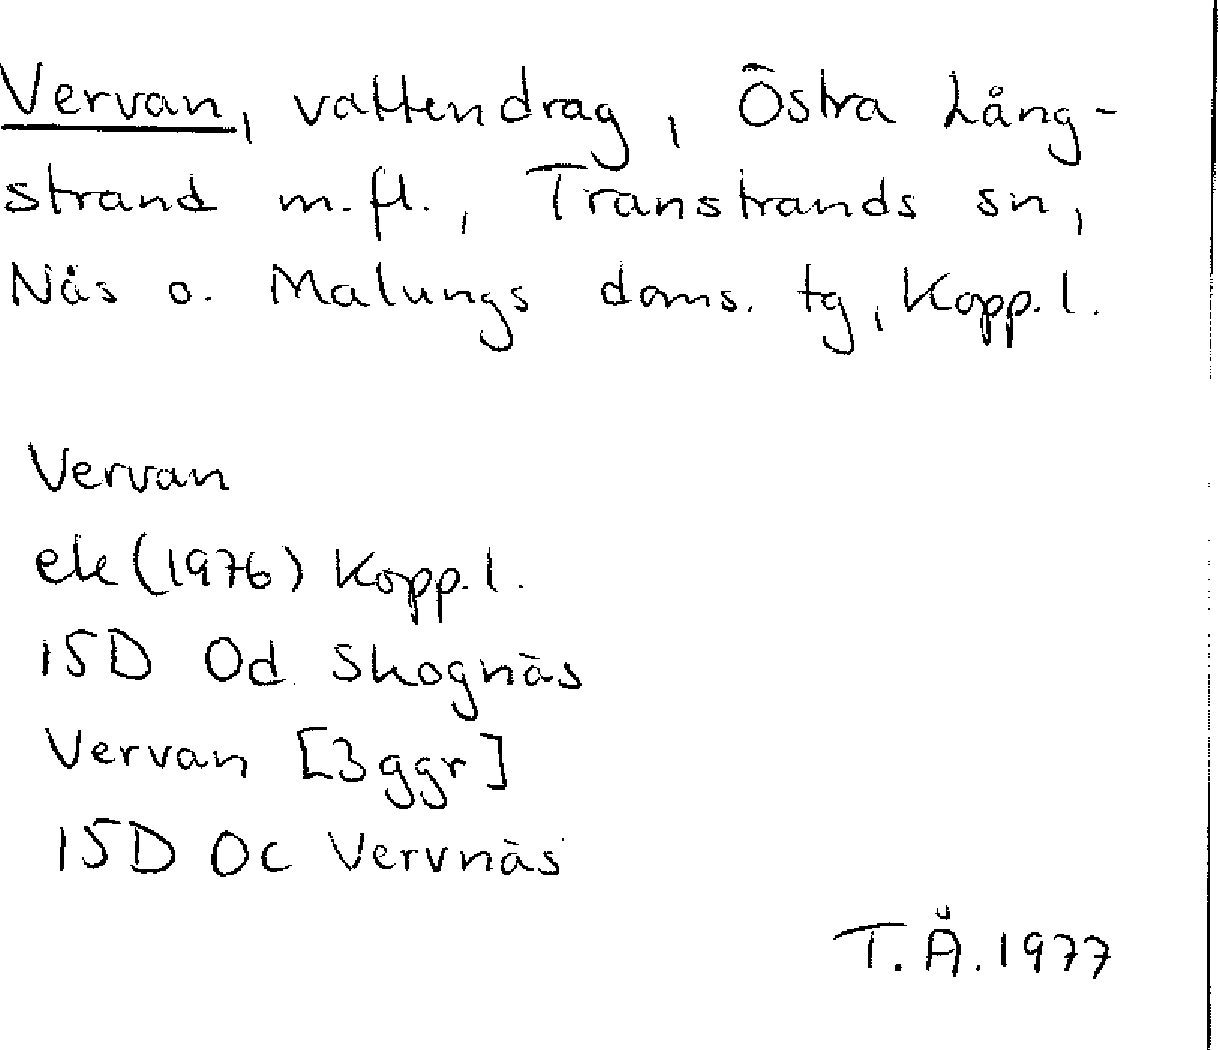 Vervan, vattendrag, Östra Lång-
strand m.fl., Transtrands sn,
Nås o. Malungs doms. tg, Kopp.l.
Vervan
ek (1976) Kopp.l.
15D 0d Skognäs
Vervan [3 ggr]
15D 0c Vervnäs
T.Å. 1977